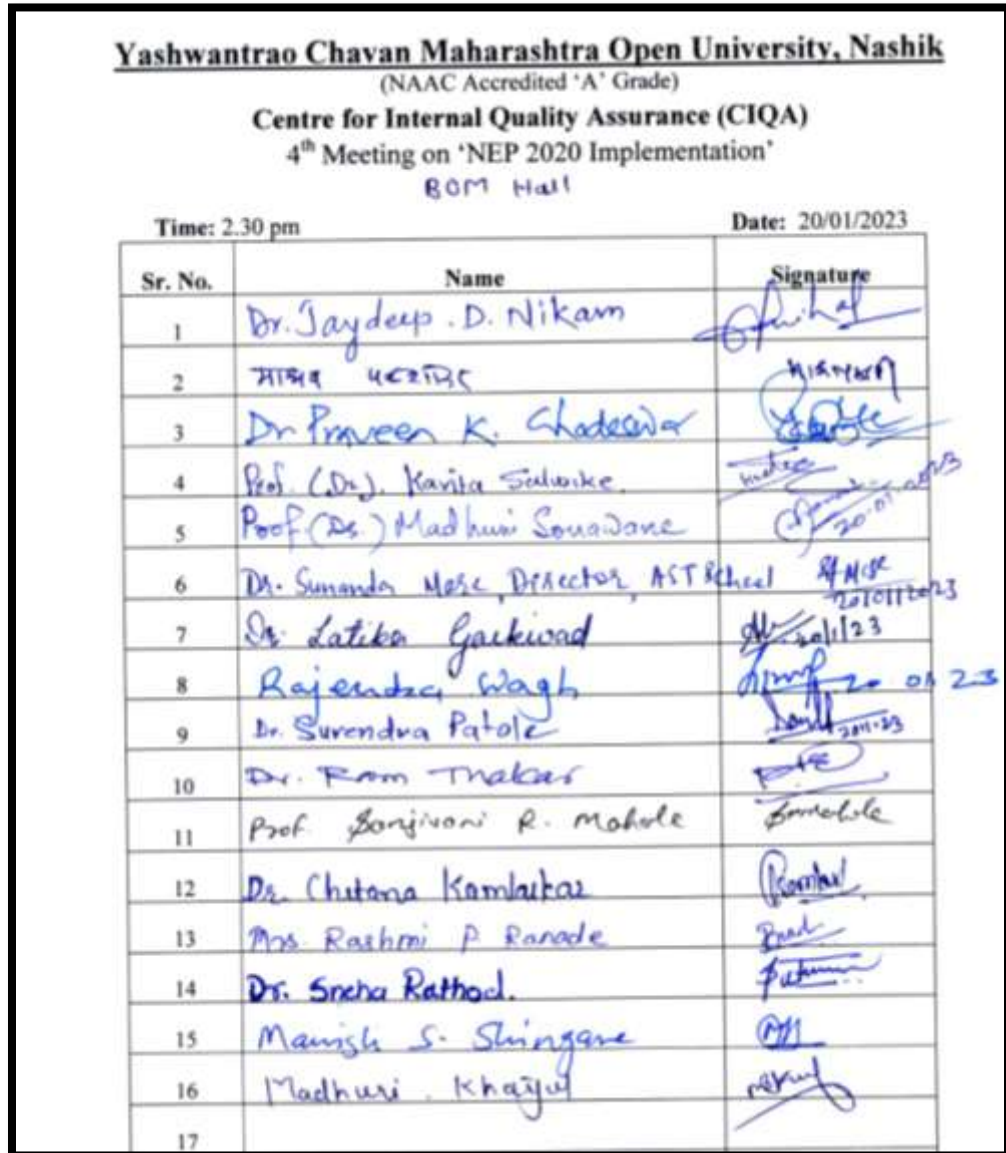 Yashwantrao Chavan Maharashtra Open University, Nashik
(NAAC Accredited 'A' Grade)
Centre for Internal Quality Assurance (CIQA)
4th Meeting on 'NEP 2020 Implementation'
BOM Hall
Time: 2.30 pm Date: 20/01/2023
Sr. No. Name Signature
1 Dr. Jaydeep . D. Nikam
2
3 Dr Praveen K. Ghodeswar
4 Prof. (Dr.). Kavita Salunke.
5 Prof. (Dr.) Madhuri Sonawane 20-01-2023
6 Dr. Sunanda More, Director, AST School 20/01/2023
7 Dr. Latika Gaikwad 20/1/23
8 Rajendra Wagh 20 01 23
9 Dr. Surendra Patole
10 Dr. Ram Thakar
11 Prof. Sanjivani R. Mahale
12 Dr. Chetana Kamlaskar
13 Mrs. Rashmi P. Ranade
14 Dr. Sneha Rathod.
15 Manish S. Shingare
16 Madhuri . Khairul
17